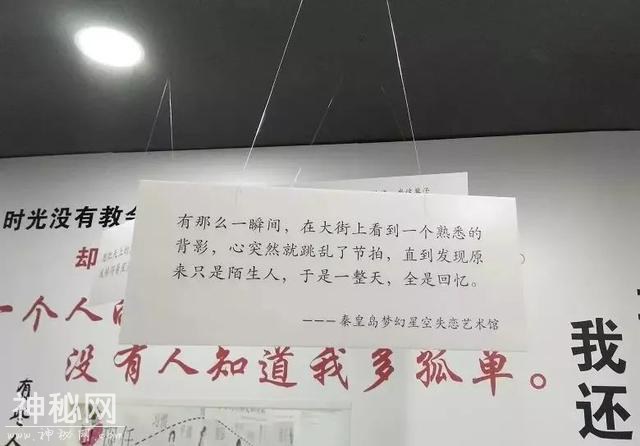 时光没有教会
却
有那么一瞬间，在大街上看到一个熟悉的
背影，心突然就跳乱了节拍，直到发现原
来只是陌生人，于是一整天，全是回忆。
———秦皇岛梦幻星空失恋艺术馆
一个人的
没有人知道我多孤单。
我
还
有些
人
神秘网
www.shenmi.com.cn